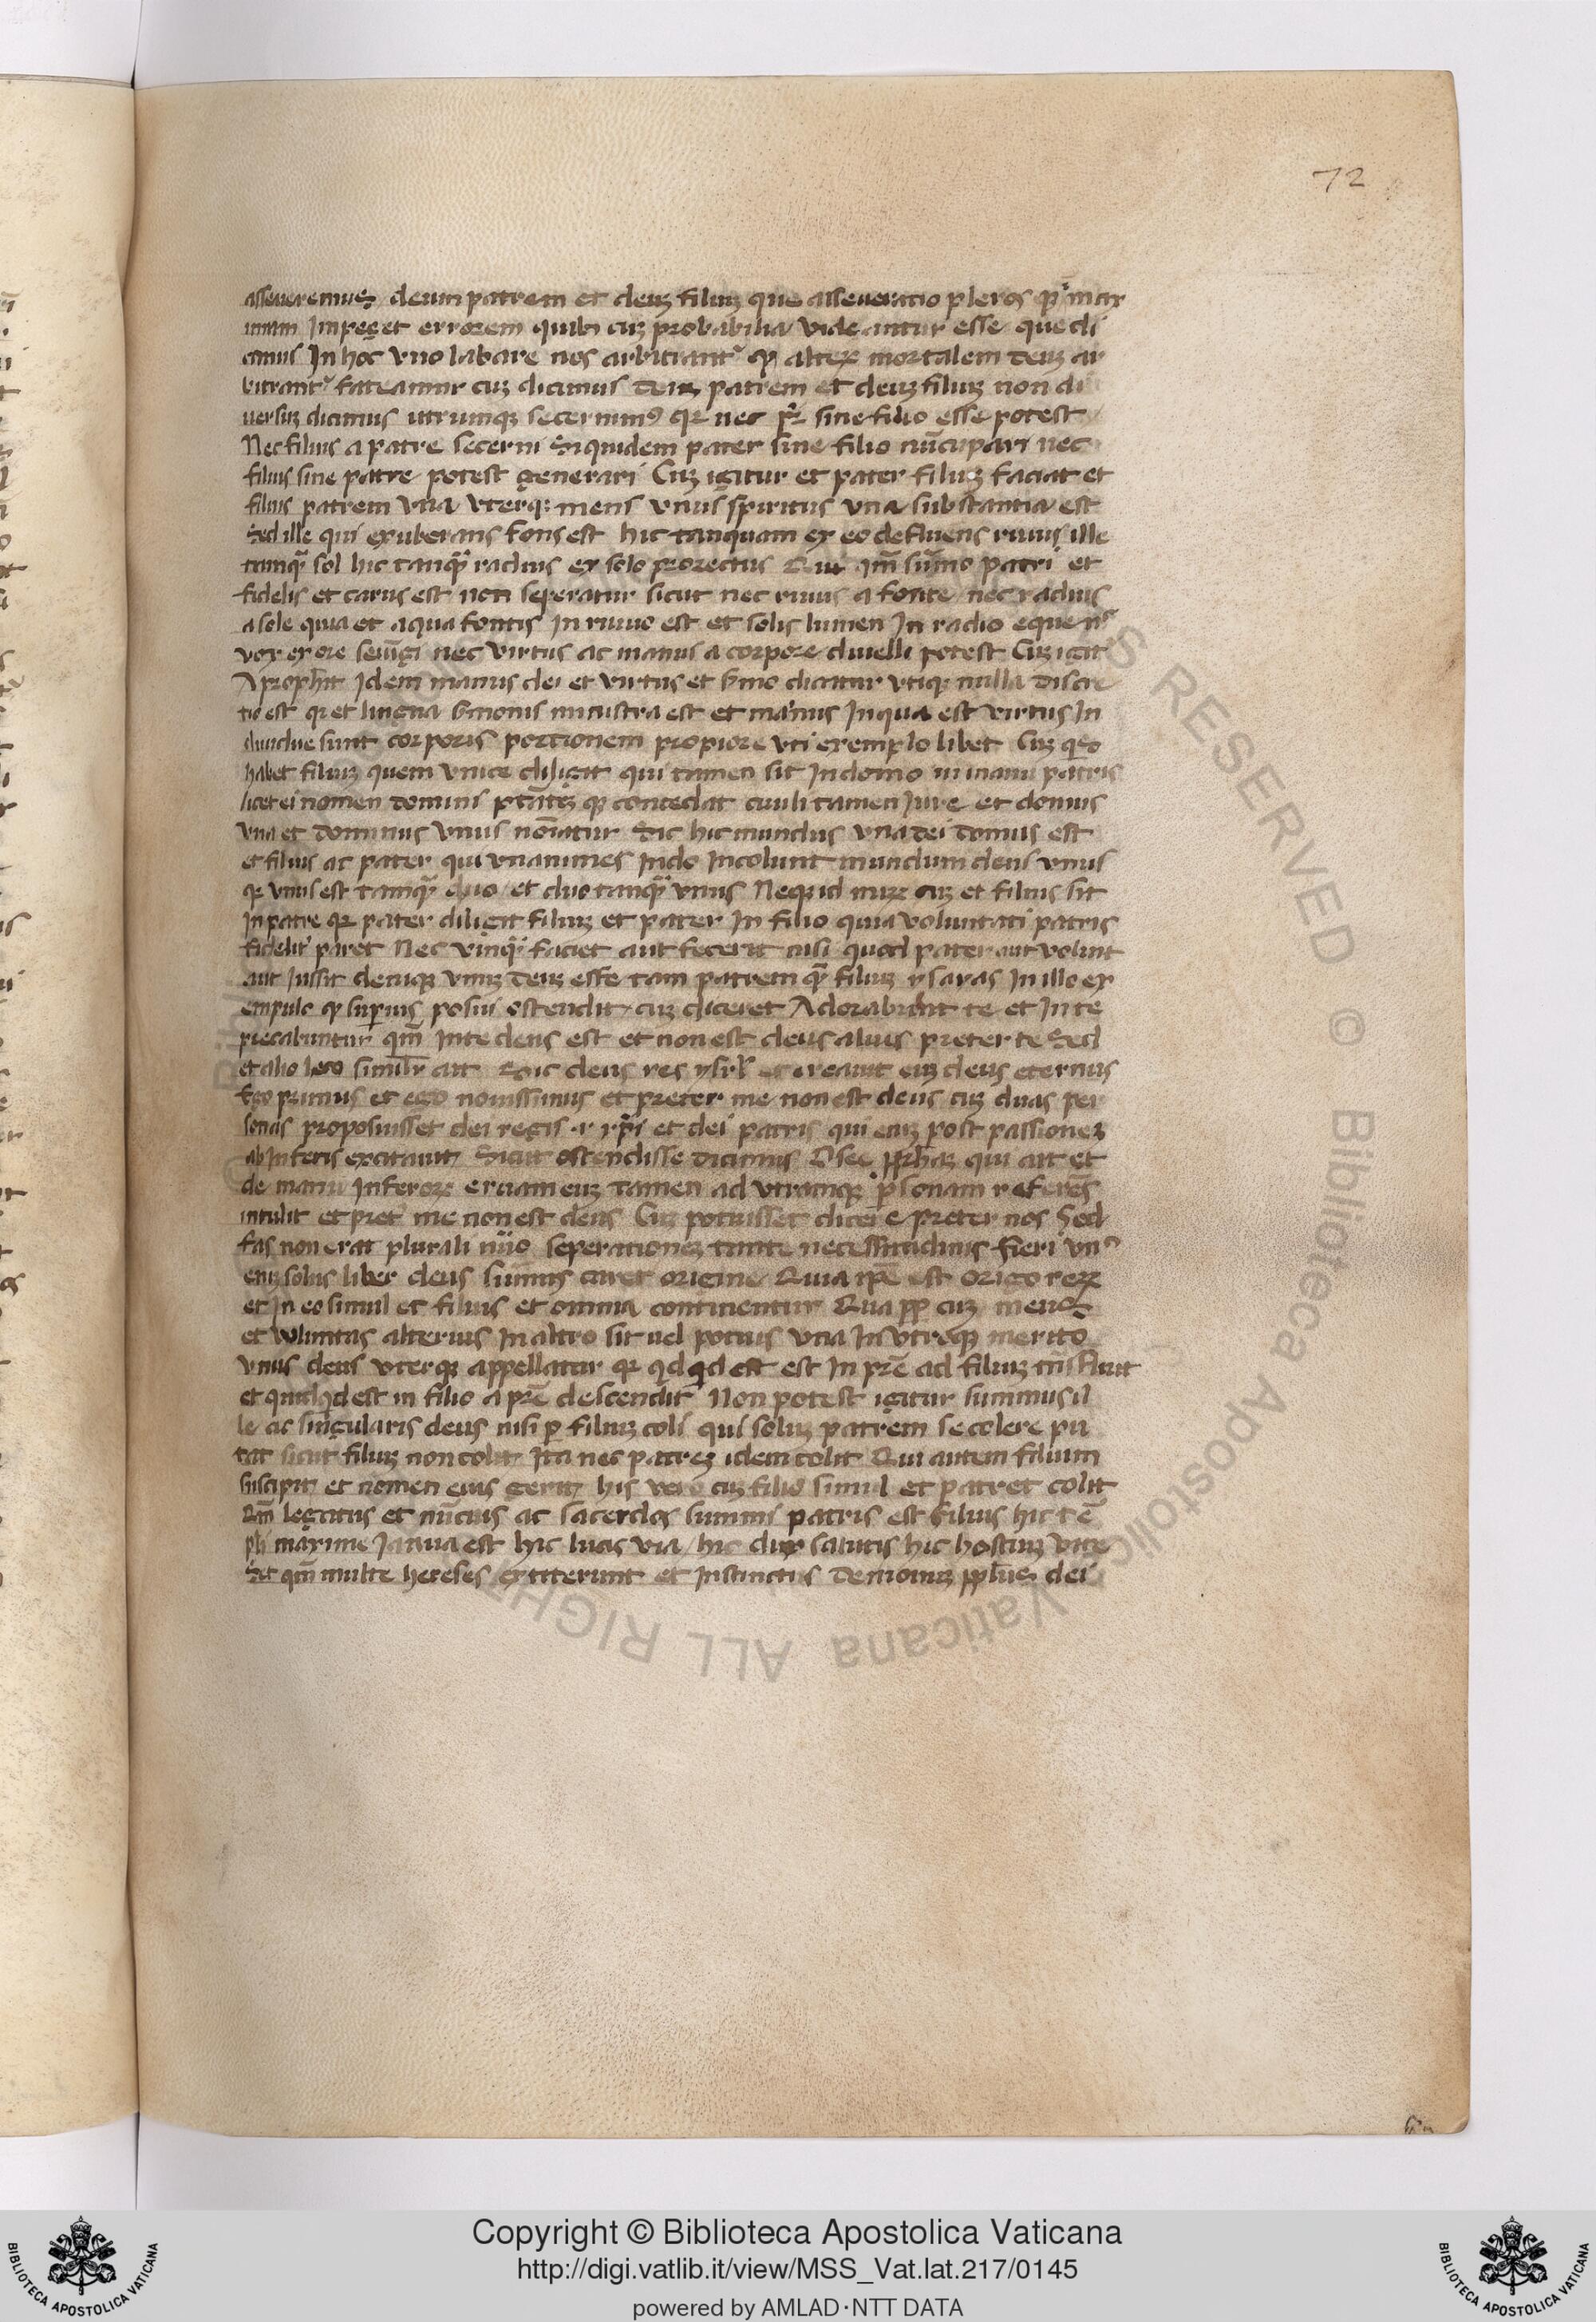 72
asseueremus deum patrem et deuʒ filiuʒ que asseueratio pleros qꝫ maxi
imum Impeget errorem quibꝰ cuʒ probabilia videantur esse que di
cimus In hoc vno labare nos arbitrantᷣ qꝫ alteꝝ mortalem deuʒ ar
bitrantᷣ fateamur cuʒ dicimus deuʒ patrem et deuʒ filiuʒ non di
uersuʒ dicimus utrumqꝫ secernimꝰ qꝛ nec pr̄ sine filio esse potest
Nec filius a patre secerni Siquidem pater sine filio nūcupari nec
filius sine patre potest generari Cuʒ igitur et pater filiuʒ faciat et
filius patrem vna vterqꝫ mens vnus spiritus vna substantia est
Sed ille qui exuberans fons est hic tanquam ex eo defluens riuus ille
tamqꝫ sol hic tanqꝫ radius ex solo prorectus Qui qm̄ sūmo patri et
fidelis et carus est non seperatur sicut nec riuus a fonte nec radius
a sole quia et aqua fontis In riuuo est et solis lumen In radio eque nͨ
vox ex ore seiūgi nec virtus ac manus a corpore diuelli potest Cuʒ igitᷣ
A prophīt Idem manus dei et virtus et ẜmo dicatur vtiqꝫ nulla discre
tio est qꝛ et lingua ẜmonis ministra est et manus In qua est virtus In
diuidue sunt corporis portionem propiore vti exemplo libet Cuʒ
habet filiuʒ quem vnice diligit qui tamen sit In domo in manu patris
licet ei nomen domini ptātēqꝫ concedat ciuili tamen Iure et domus
vna et dominus vnus nōiatur Sic hic mundus vna dei domus est
et filius ac pater qui vnanimes Indo Incolunt mundum deus vnus
qꝛ vnus est tamqꝫ duo et duo tanqꝫ vnus Neqꝫ id miꝝ cuʒ et filius sit
In patre qꝛ pater diligit filiuʒ et pater In filio quia voluntati patris
fidelitᷣ paret Nec vnqꝫ faciet aut fecerit nisi quod pater aut voluit
aut Iussit deniqꝫ vnuʒ deuʒ esse tam patrem qꝫ filiuʒ ysayas In illo ex
emplo qꝫ suꝑius posui ostendit cuʒ diceret Adorabunt te et In te
precabuntur qm̄ In te deus est et non est deus alius preter te Sed
et alio loco similr̄ ait Sic deus res ysrl̄ et creauit euʒ deus eternus
Ego primus et ego nouissimus et preter me non est deus cuʒ duas per
sonas proposuisset dei regis .i. xp̄i et dei patris qui euʒ post passioneʒ
ab Inferis excitauit Sicut ostendisse dicimus Osee ꝓphaʒ qui ait et
de manu Inferoꝝ eruam euʒ tamen ad vtramqꝫ ꝑsonam referēs
intulit et pretᷣ me non est deus Cuʒ potuisset dicere preter nos Sed
fas non erat plurali nūo seperationeʒ tante necessitudinis fieri vnꝰ
eniʒ solus liber deus sūmus caret origine Quia ip̄e est origo reꝝ
et In eo simul et filius et omnia continentur Qua ꝓp̄ cuʒ mens
et voluntas alterius In altro sit uel potius vna In vtroqꝫ merito
vnus deus vterqꝫ appellatur qꝛ qd qd est est In pr̄e ad filiuʒ trāsfluit
et quidqd est in filio a pr̄e descendit Non potest igitur summus il
le ac singularis deus nisi ꝑ filiuʒ coli qui soluʒ patrem se colere pu
tat sicut filiuʒ non colit Ita nec patreʒ idem colit Qui autem filium
suscipit et nomen eius gerit his vero cuʒ filio simul et patret colit
Qm̄ legatus et nūcius ac sacerdos summi patris est filius hic tē
pli maxime Ianua est hic lucis via hic dux salutis hic hostiuʒ vite
Set qm̄ multe hereses extiterunt et Instinctus demonuʒ ppl̄us dei
Copyright © Biblioteca Apostolica Vaticana
http://digi.vatlib.it/view/MSS_Vat.lat.217/0145
powered by AMLAD·NTT DATA
BIBLIOTECA APOSTOLICA VATICANA
BIBLIOTECA APOSTOLICA VATICANA